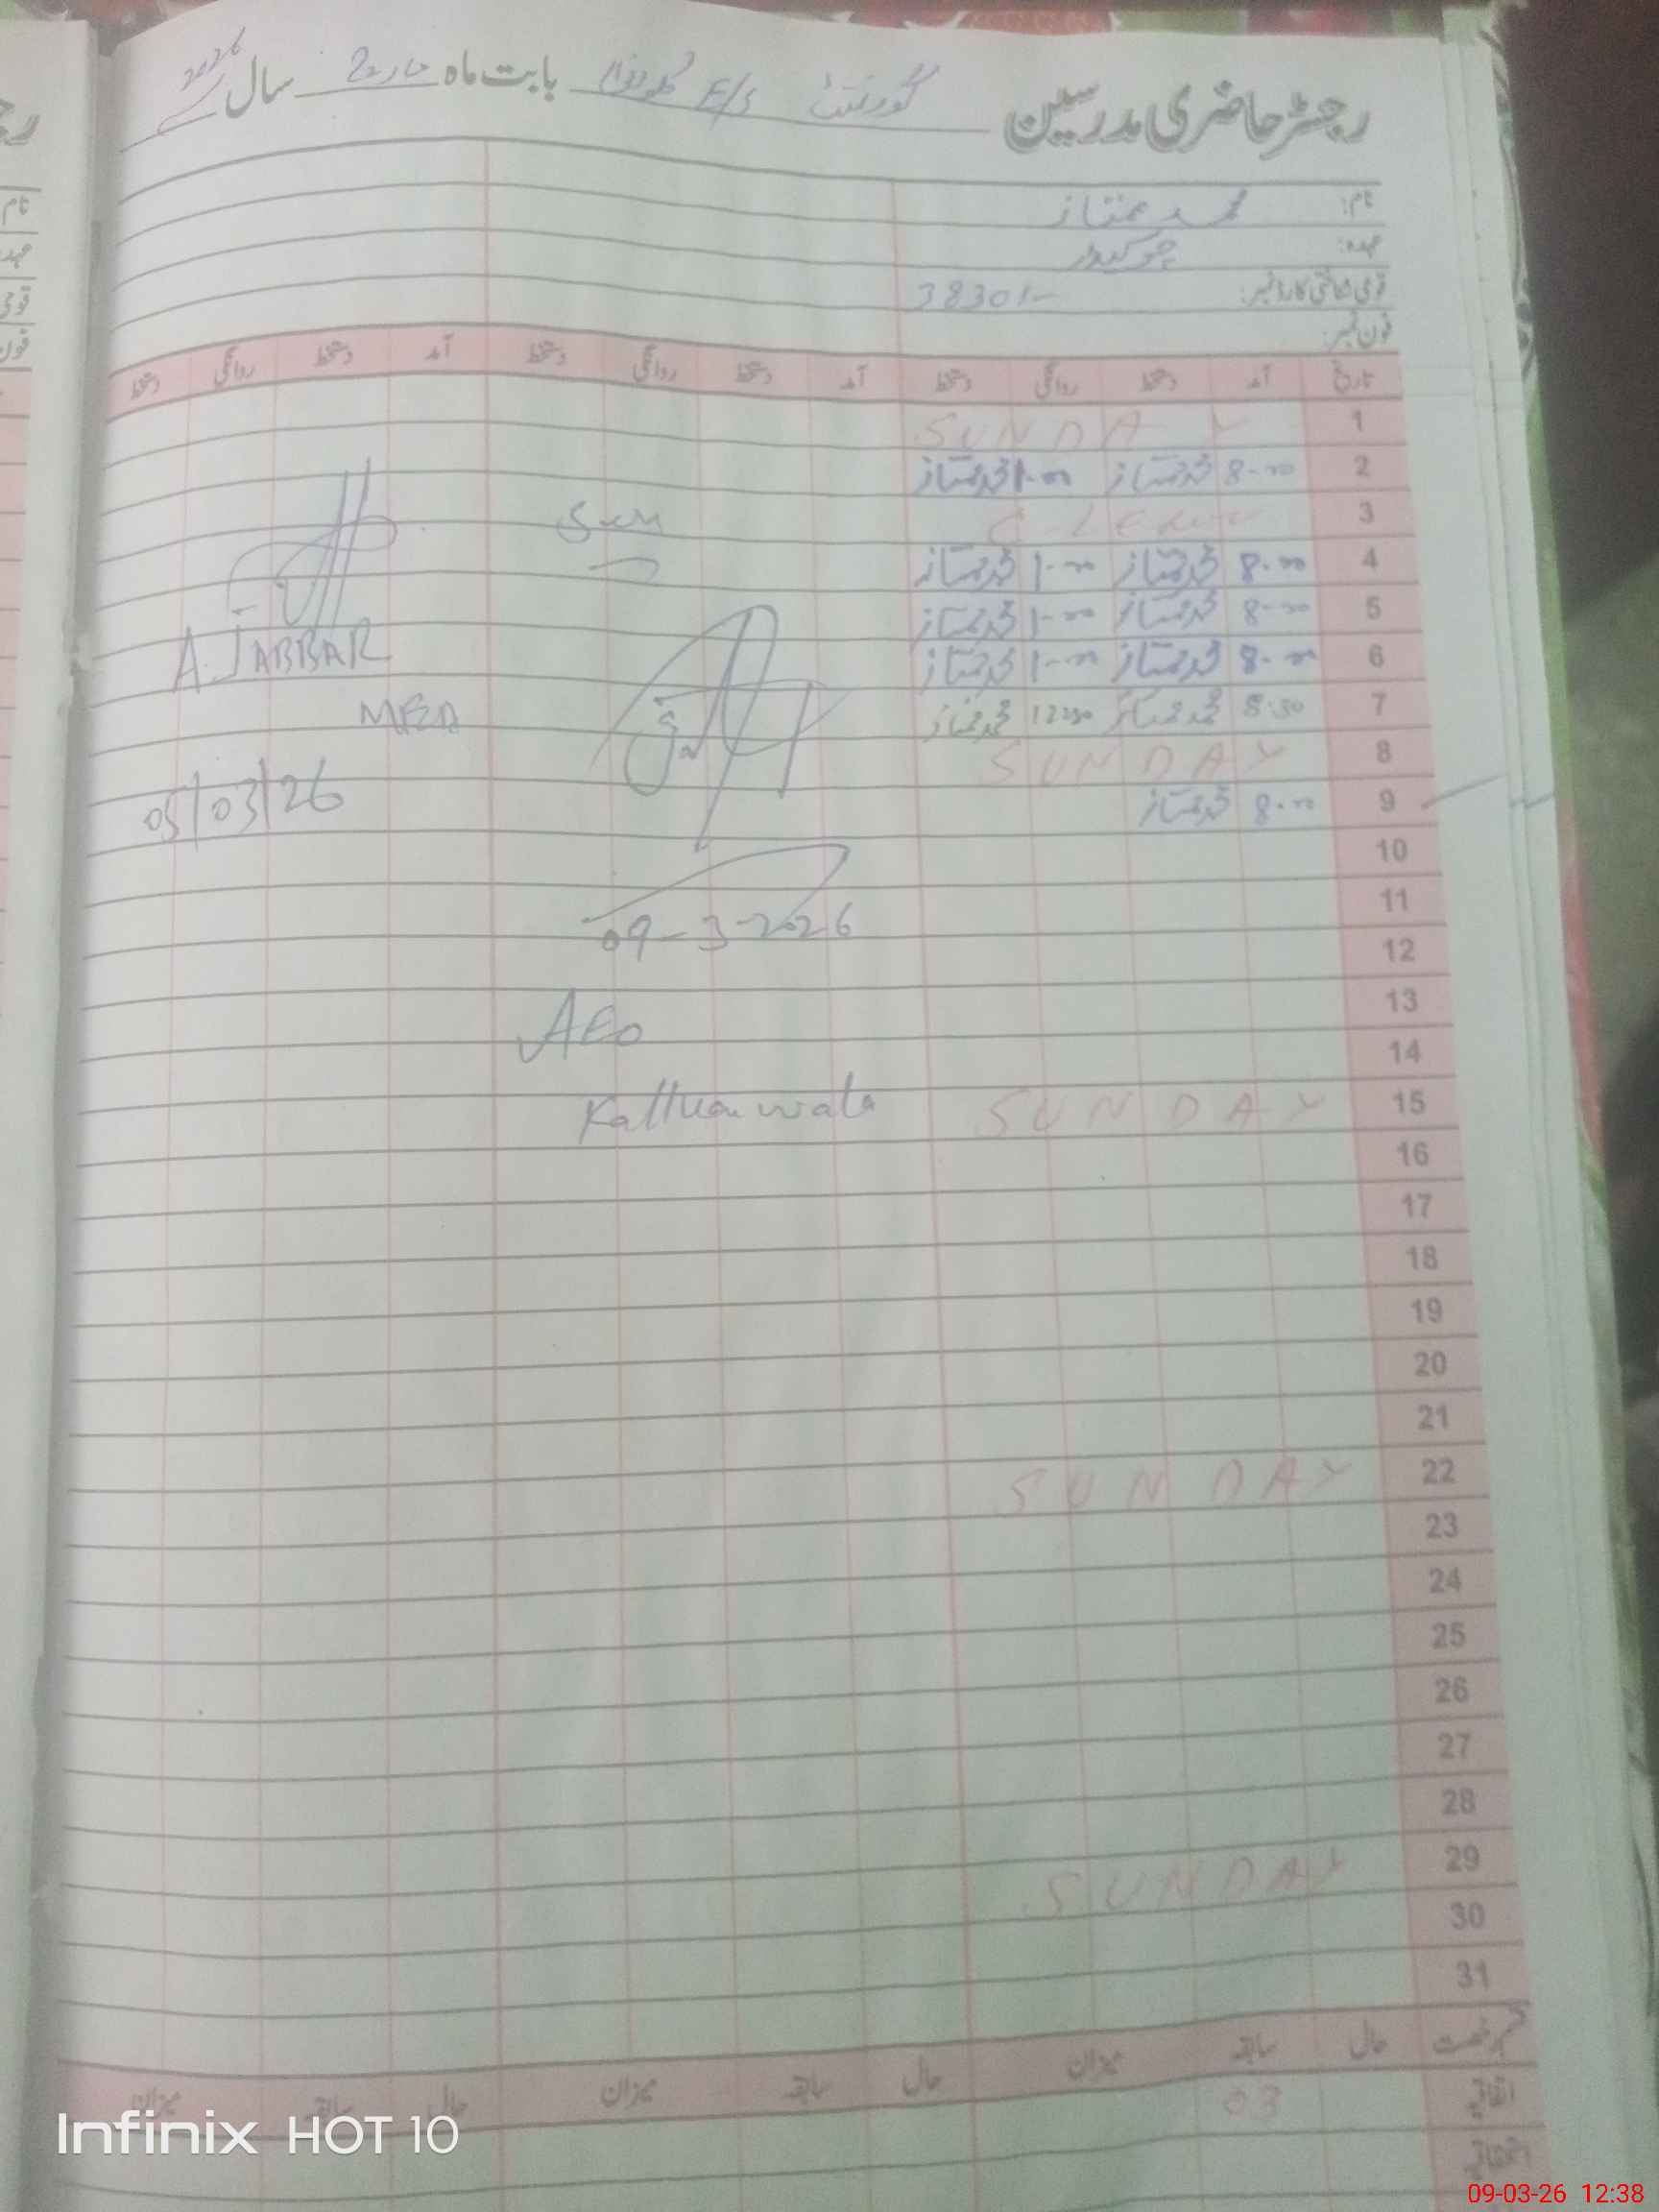 رجسٹر حاضری مدرسین گورنمنٹ E/S بابت ماہ مارچ سال 2026
نام: محمد ممتاز
عہدہ: چوکیدار
قومی شناختی کارڈ نمبر: 38301-
فون نمبر:
تاریخ آمد دستخط روانگی دستخط آمد دستخط روانگی دستخط آمد دستخط روانگی دستخط
1 SUNDAY
2 8-00 محمد ممتاز 1-00 محمد ممتاز
3 C-Leave
4 8-00 محمد ممتاز 1-00 محمد ممتاز
5 8-00 محمد ممتاز 1-00 محمد ممتاز
6 8-00 محمد ممتاز 1-00 محمد ممتاز
7 8:30 محمد ممتاز 12:30 محمد ممتاز
8 SUNDAY
9 8-00 محمد ممتاز
10
11
12
13
14
15 SUNDAY
16
17
18
19
20
21
22 SUNDAY
23
24
25
26
27
28
29 SUNDAY
30
31
Seen
09-3-2026
AEO
A. JABBAR
MEA
05/03/26
قسم رخصت حال سابقہ میزان حال سابقہ میزان حال سابقہ میزان
اتفاقیہ 03
استحقاقیہ
نام
عہدہ
قومی
فون
Infinix HOT 10
09-03-26 12:38